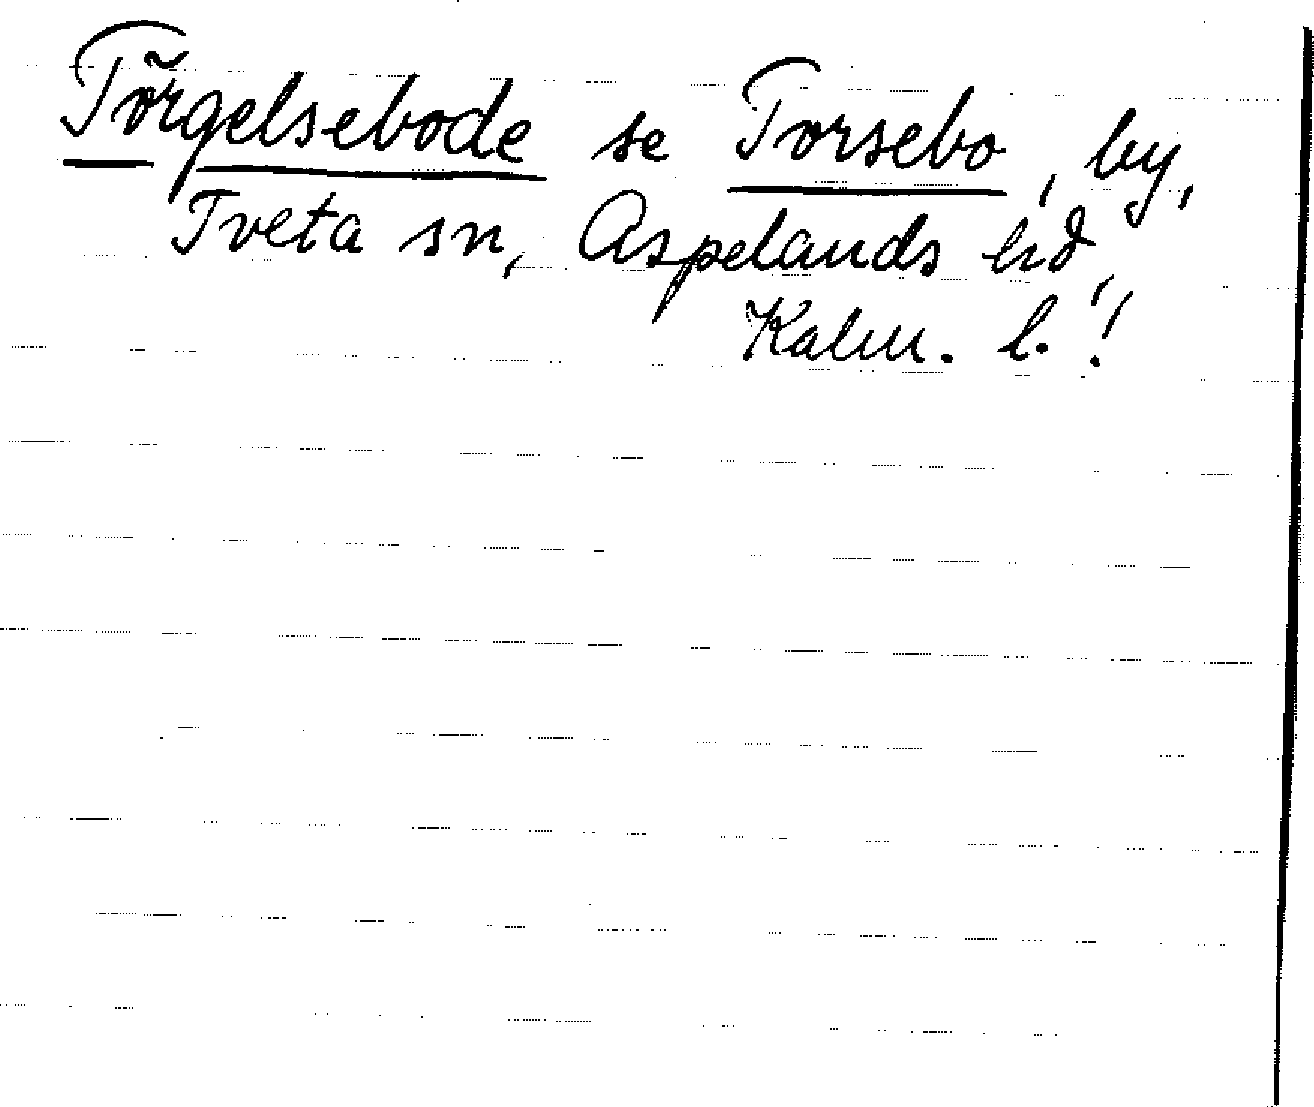 Tõrgelsebode se Torsebo, by,
Tveta sn, Aspelands hd,
Kalm. l.!